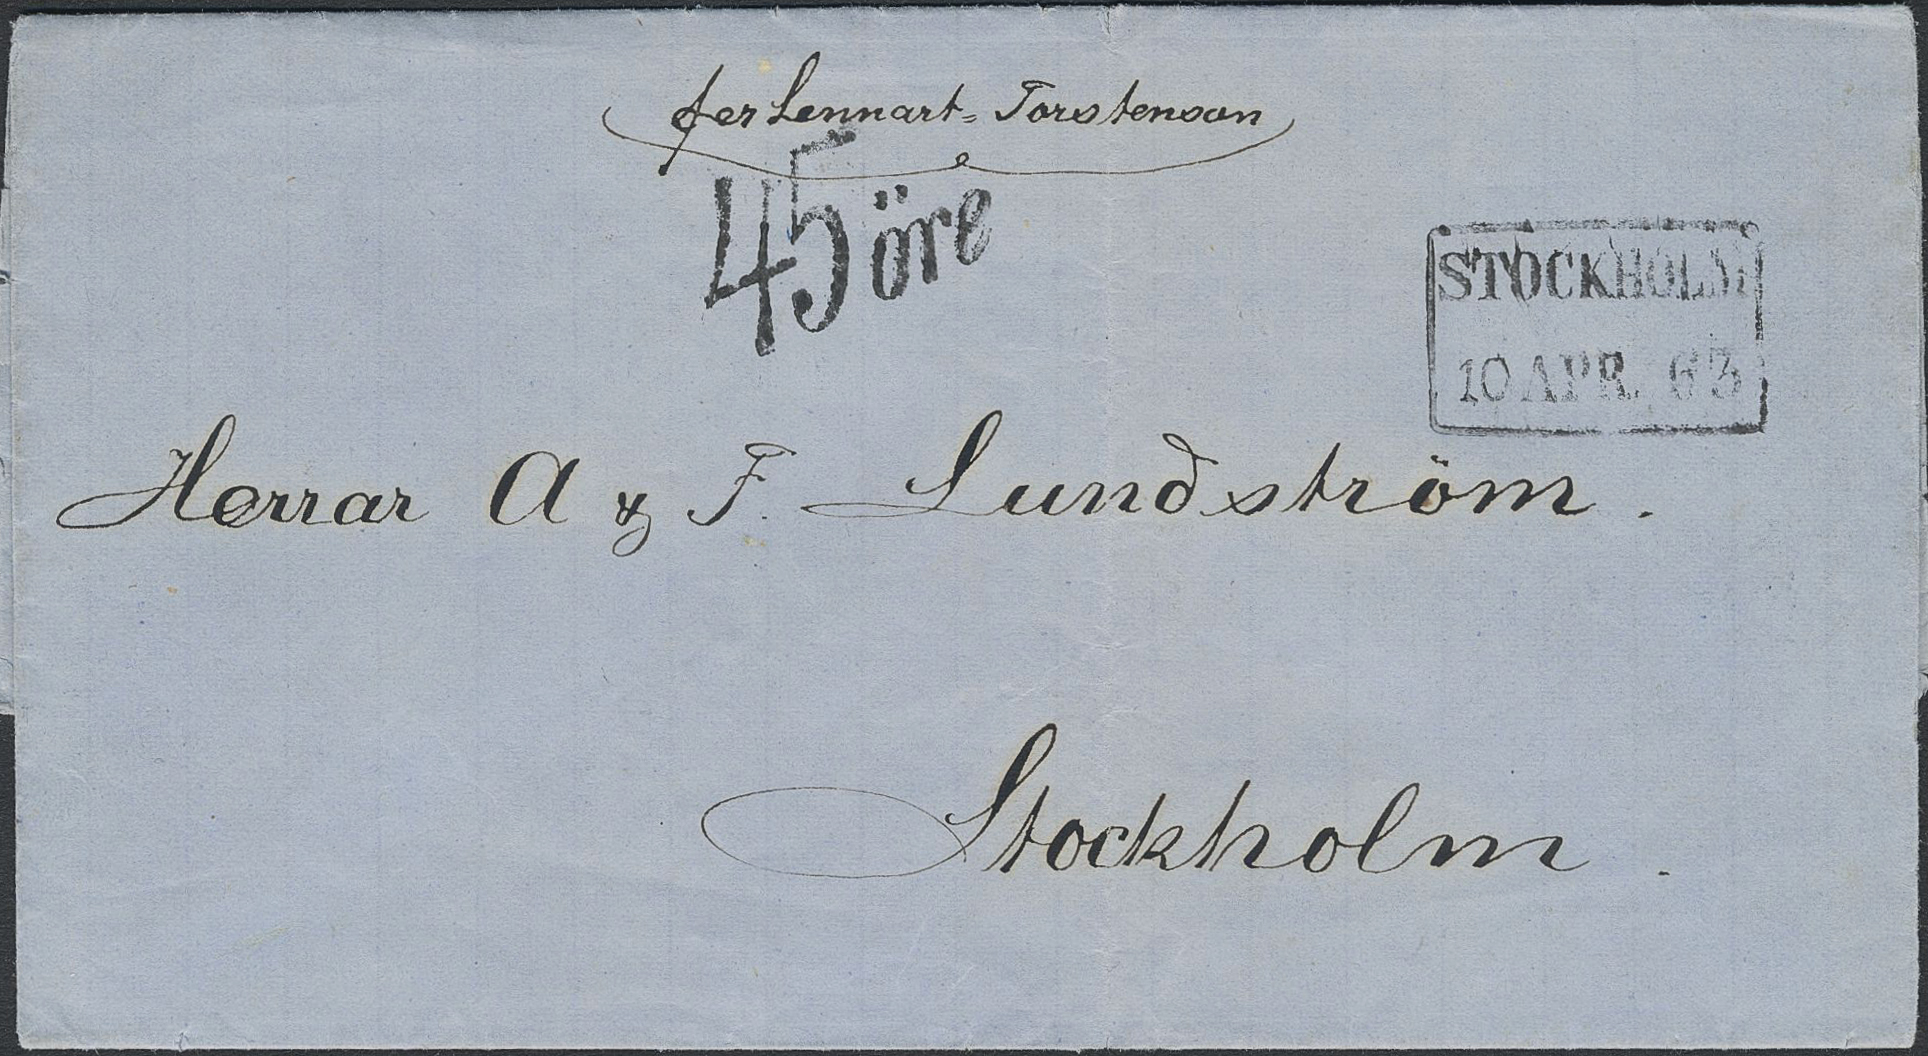 per Lennart= Torstenson
45 öre
STOCKHOLM
10 APR. 63
Herrar A & F. Lundström.
Stockholm.